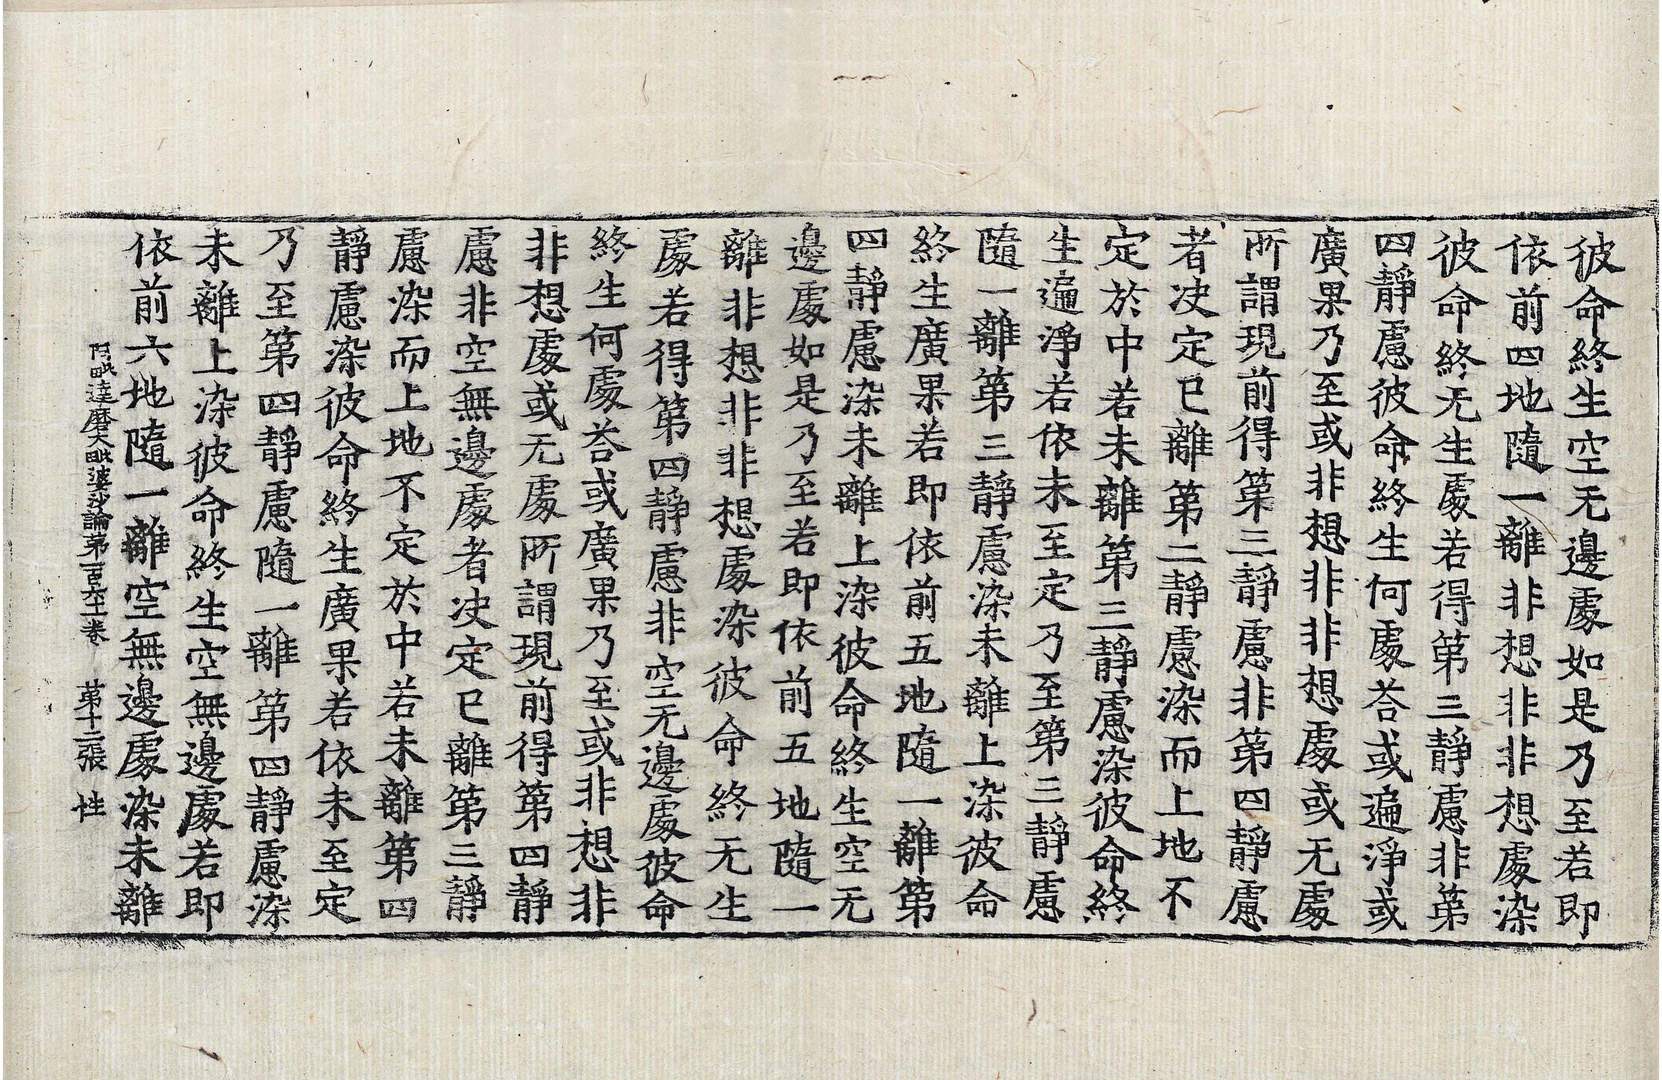 彼命終生空无邊處如是乃至若即
依前四地隨一離非想非非想處染
彼命終无生處若得第三靜慮非第
四靜慮彼命終生何處荅或遍淨或
廣果乃至或非想非非想處或无處
所謂現前得第三靜慮非第四靜慮
者决定已離第二靜慮染而上地不
定於中若未離第三靜慮染彼命終
生遍淨若依未至定乃至第三靜慮
隨一離第三靜慮染未離上染彼命
終生廣果若即依前五地隨一離第
四靜慮染未離上染彼命終生空无
邊處如是乃至若即依前五地隨一
離非想非非想處染彼命終无生
處若得第四靜慮非空无邊處彼命
終生何處荅或廣果乃至或非想非
非想處或无處所謂現前得第四靜
慮非空無邊處者决定已離第三靜
慮染而上地不定於中若未離第四
靜慮染彼命終生廣果若依未至定
乃至第四靜慮隨一離第四靜慮染
未離上染彼命終生空無邊處若即
依前六地隨一離空無邊處染未離
阿毗達磨大毗婆沙論第一百六十二卷 第十二張 性